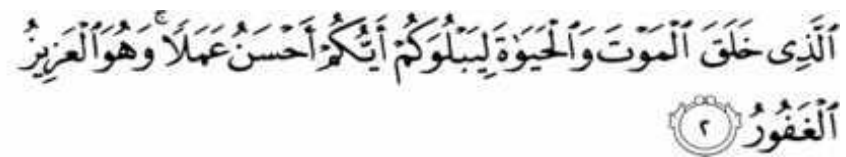 ٱلَّذِى خَلَقَ ٱلْمَوْتَ وَٱلْحَيَوٰةَ لِيَبْلُوَكُمْ أَيُّكُمْ أَحْسَنُ عَمَلًا ۚ وَهُوَ ٱلْعَزِيزُ
ٱلْغَفُورُ ٢